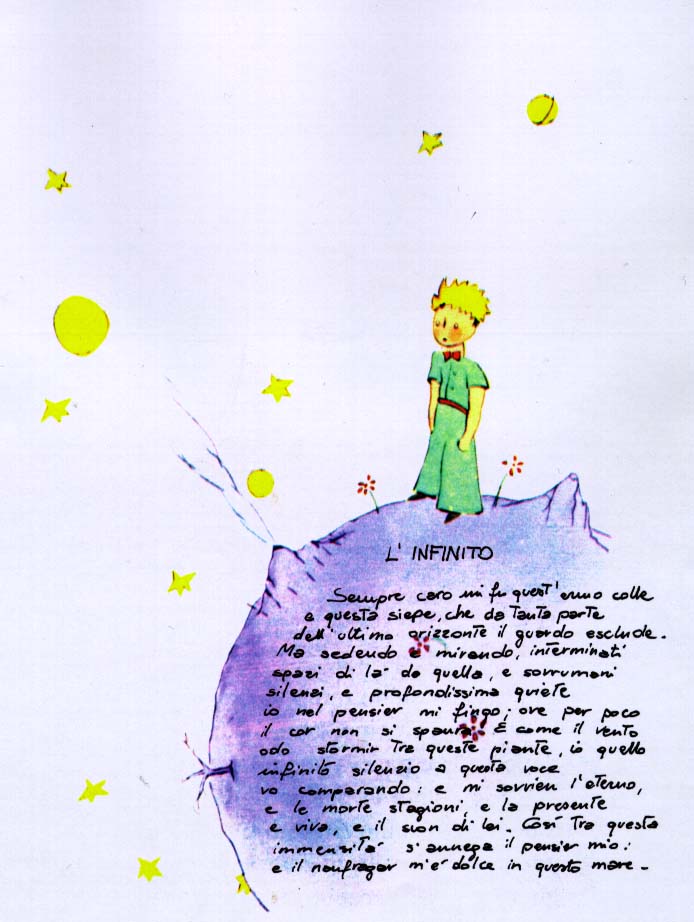 L' INFINITO
Sempre caro mi fu quest' ermo colle
e questa siepe, che da tanta parte
dell'ultimo orizzonte il guardo esclude.
Ma sedendo e mirando, interminati
spazi di là da quella, e sovrumani
silenzi, e profondissima quiete
io nel pensier mi fingo; ove per poco
il cor non si spaura. E come il vento
odo stormir tra queste piante, io quello
infinito silenzio a questa voce
vo comparando: e mi sovvien l'eterno,
e le morte stagioni, e la presente
e viva, e il suon di lei. Così tra questa
immensità s'annega il pensier mio:
e il naufragar m'è dolce in questo mare.